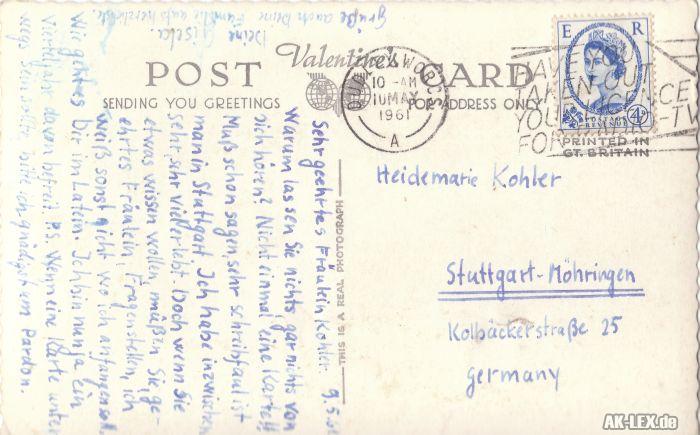 Valentine's
POST CARD
SENDING YOU GREETINGS
FOR ADDRESS ONLY
THIS IS A REAL PHOTOGRAPH
10 - AM
10 MAY
1961
A
HAVE YOU
TAKEN OUT
YOUR LICENCE
FOR TV
E R
POSTAGE
REVENUE
4D
PRINTED IN
GT. BRITAIN
Heidemarie Kohler
Stuttgart-Möhringen
Kolbäckerstraße 25
Germany
9.5.61
Sehr geehrtes Fräulein Kohler.
Warum lassen Sie nichts, gar nichts von
sich hören? Nicht einmal eine Karte!!
Muß schon sagen sehr schreibfaul ist
man in Stuttgart. Ich habe inzwischen
sehr, sehr viel erlebt. Doch wenn Sie
etwas wissen wollen, müßen Sie, ge-
ehrtes Fräulein, Fragen stellen, ich
weiß sonst nicht wo ich anfangen soll.
Wie geht es Dir im Latein. Ich bin nun ja ein
vierteljahr davon befreit. P.S. Wenn eine Karte unter
wegs sein sollte, bitte ich gnädigst um Pardon.
Deine Gisela.
Grüße auch Deine Familie aufs herzlichste.
AK-LEX.de